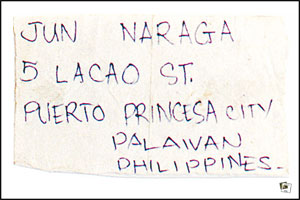 JUN NARAGA
5 LACAO ST.
PUERTO PRINCESA CITY
PALAWAN
PHILIPPINES-